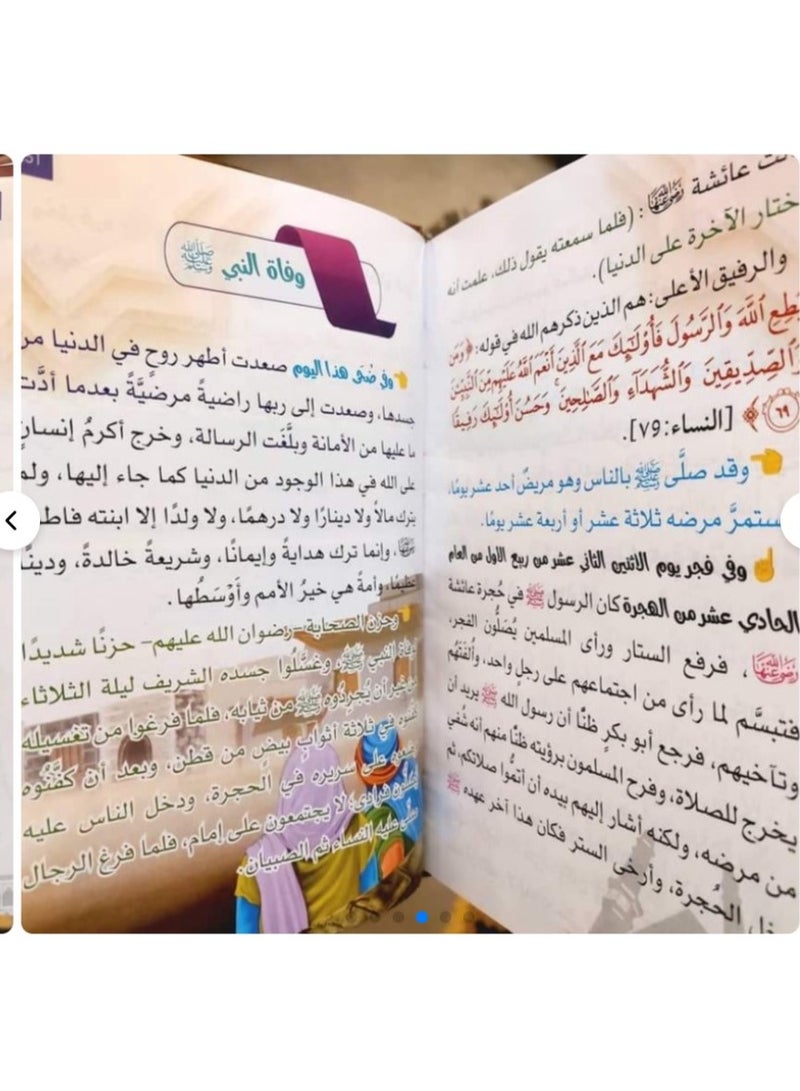 عائشة رضي الله عنها: (فلما سمعته يقول ذلك، علمت أنه
ختار الآخرة على الدنيا).
والرفيق الأعلى: هم الذين ذكرهم الله في قوله: ﴿وَمَن
يُطِعِ ٱللَّهَ وَٱلرَّسُولَ فَأُوْلَٰٓئِكَ مَعَ ٱلَّذِينَ أَنۡعَمَ ٱللَّهُ عَلَيۡهِم مِّنَ ٱلنَّبِيِّـۧنَ
وَٱلصِّدِّيقِينَ وَٱلشُّهَدَآءِ وَٱلصَّٰلِحِينَۚ وَحَسُنَ أُوْلَٰٓئِكَ رَفِيقٗا
٦٩﴾ [النساء:٧٩].
وقد صلَّى ﷺ بالناس وهو مريضٌ أحد عشر يومًا،
ستمرَّ مرضه ثلاثة عشر أو أربعة عشر يومًا.
وفي فجر يوم الاثنين الثاني عشر من ربيع الأول من العام
الحادي عشر من الهجرة كان الرسول ﷺ في حُجرة عائشة
رضي الله عنها، فرفع الستار ورأى المسلمين يُصَلُّون الفجر،
فتبسَّم لما رأى من اجتماعهم على رجلٍ واحد، وأُلفَتُهُم
وتآخيهم، فرجع أبو بكرٍ ظنًّا أن رسول الله ﷺ يريد أن
يخرج للصلاة، وفرح المسلمون برؤيته ظنًّا منهم أنه شُفي
من مرضه، ولكنه أشار إليهم بيده أن أتمُّوا صلاتكم، ثم
الحُجرة، وأرخى الستر فكان هذا آخر عهده ﷺ
وفاة النبي ﷺ
وفي ضُحَى هذا اليوم صعدت أطهر روحٍ في الدنيا من
جسدها، وصعدت إلى ربها راضيةً مرضيَّةً بعدما أدَّت
ما عليها من الأمانة وبلَّغَت الرسالة، وخرج أكرمُ إنسانٍ
على الله في هذا الوجود من الدنيا كما جاء إليها، ولم
يترك مالاً ولا دينارًا ولا درهمًا، ولا ولدًا إلا ابنته فاطمة
رضي الله عنها، وإنما ترك هدايةً وإيمانًا، وشريعةً خالدةً، ودينًا
عظيمًا، وأمةً هي خيرُ الأمم وأَوْسَطُها.
وحزن الصحابة -رضوان الله عليهم- حزنًا شديدًا
لوفاة النبي ﷺ، وغسَّلُوا جسده الشريف ليلة الثلاثاء
من غير أن يُجردُوه ﷺ من ثيابه، فلما فرغوا من تغسيله
كفنوه في ثلاثة أثوابٍ بيض من قطن، وبعد أن كفَّنُوه
وضعوه على سريره في الحجرة، ودخل الناس عليه
يصلون فُرادى، لا يجتمعون على إمام، فلما فرغ الرجال
صلَّى عليه النساء ثم الصبيان.